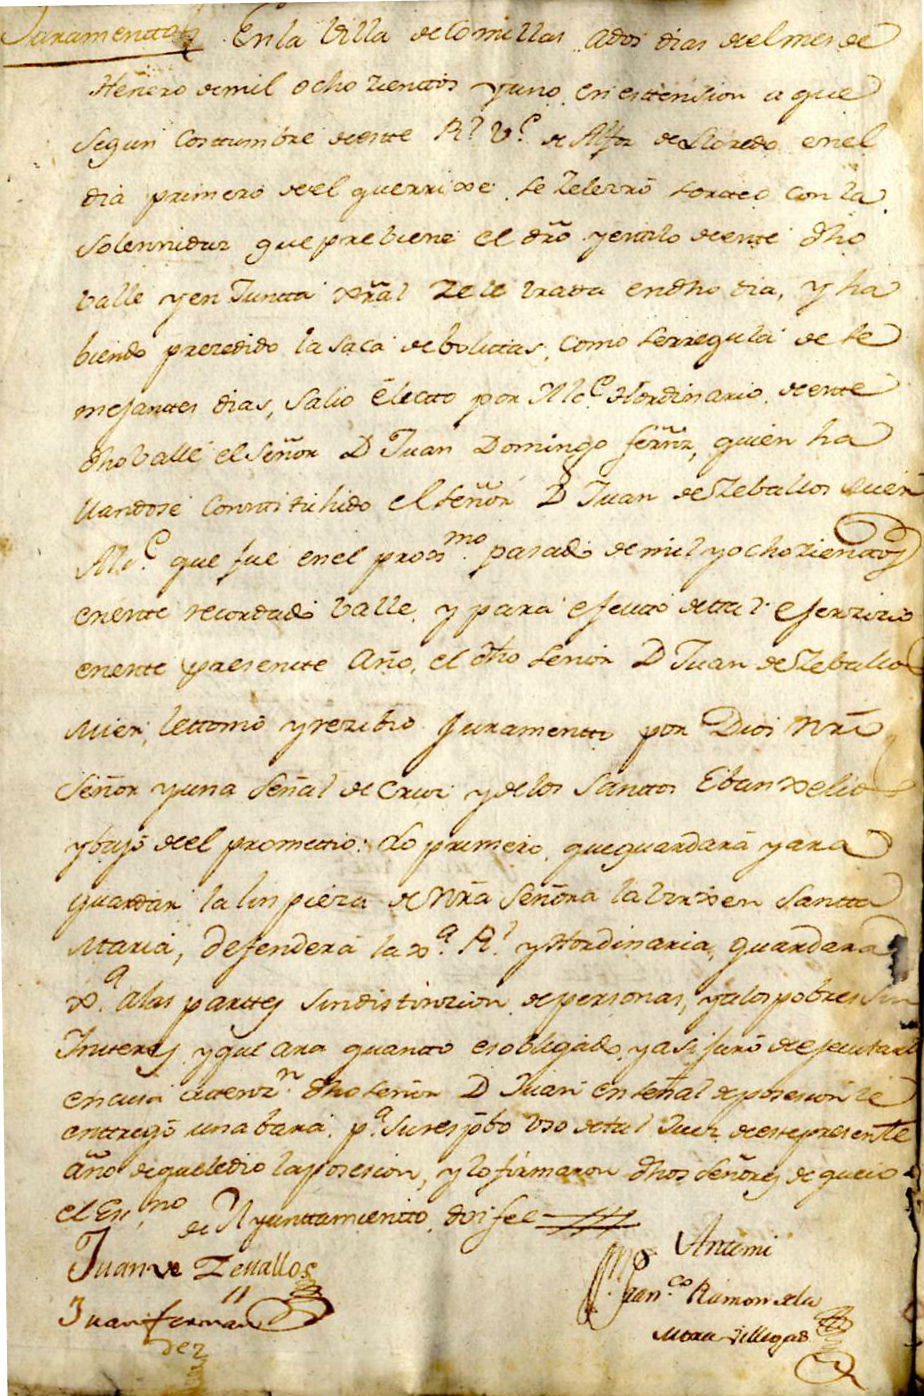 Juramento En la Villa de Comillas a dos dias del mes de
Henero de mil ocho zientos y uno en attension a que
segun costumbre de este Rl. Ve. de Alfoz de Lloredo en el
dia primero de el que rrixe se zelebró sorteo con la
solemnidaz que prebiene el dro. y estilo de este dho
Valle y en Juntta xral zelebrada en dho dia, y ha
biendo prezedido la saca de boluttas como se rregula de se
mejanttes dias, salio electto por Alce. Hordinario de este
dho Valle el Señor D Juan Domingo ferñz, quien ha
llandose consttituhido el señor D Juan de Zeballos Mier
Alce. que fue en el proxmo. pasado de mil y ocho zientos
en este recordado Valle, y para efectto de tal ejerzizio
en este presentte Año, el dho señor D Juan de Zeballos
Mier, le ttomó y rezibio Juramentto por Dios Nrô
Señor y una señal de Cruz y de los Santtos Ebanxelios
y bajo de el promettio: Lo primero, que guardará y ara
guardar la linpieza de Nrâ Señora la Virxen Santta
Maria, defenderá la xa. Rl. y Hordinaria, guardara
xa. a las parttes sin distinzion de personas, y a los pobres sin
Ynteres y que ara quantto es obligado, y asi juró de ejecutarlo
en cuia attenzn. dho señor D Juan en señal de posesion le
enttregó una bara pa. su respbo uso de tal Juez de este presente
año de que le dio la posesion, y lo firmaron dhos señores de que io
el Esno. de Ayunttamientto doi fee
Juan de Zevallos
Antemi
Juan fernan
dez
Franco. Ramon de la
Mtra Villegas